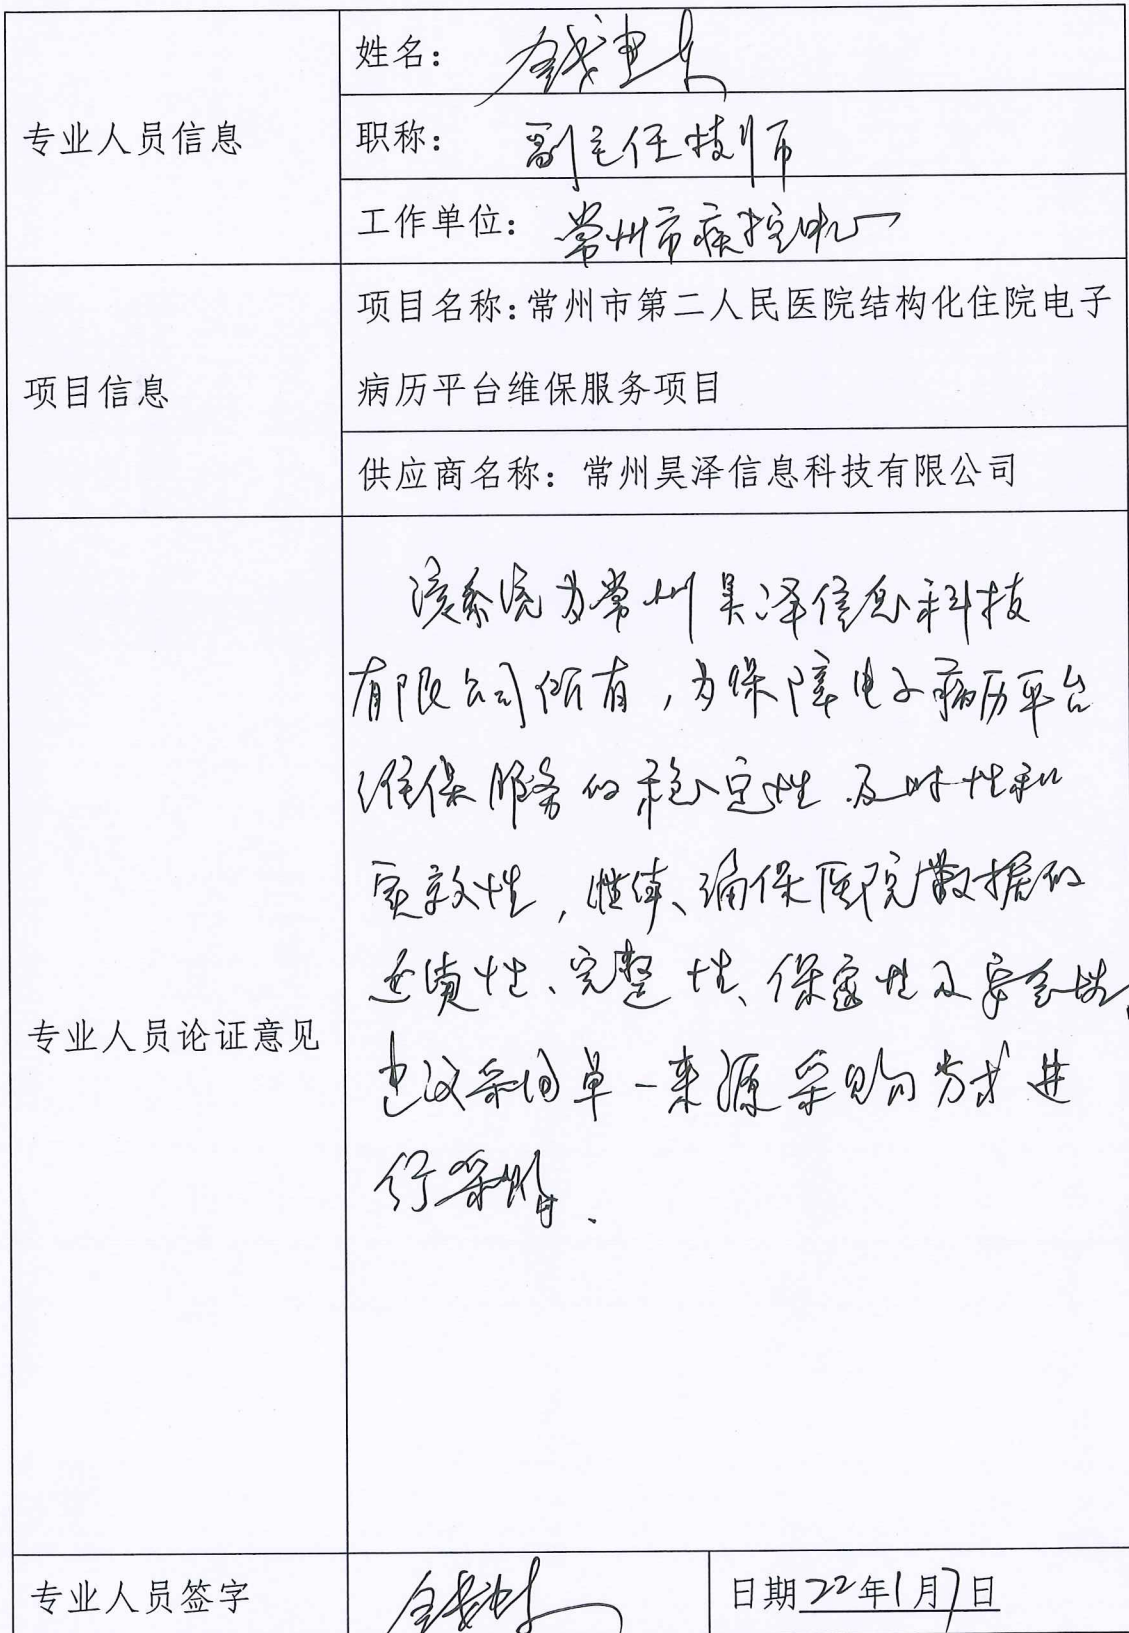 专业人员信息
姓名：钱建东
职称：副主任技师
工作单位：常州市疾控中心
项目信息
项目名称：常州市第二人民医院结构化住院电子
病历平台维保服务项目
供应商名称：常州昊泽信息科技有限公司
专业人员论证意见
该系统为常州昊泽信息科技
有限公司所有，为保障电子病历平台
维保服务的稳定性、及时性和
实效性，确保医院数据的
连续性、完整性、保密性及安全性，
建议采用单一来源采购方式进
行采购。
专业人员签字
日期22年1月7日